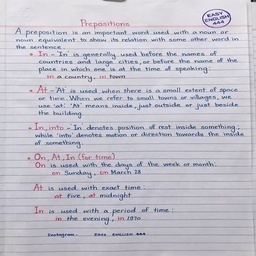 Prepositions
EASY
ENGLISH
444
A preposition is an important word used with a noun or
noun equivalent to show its relation with some other word in
the sentence.
In - 'In' is generally used before the names of
countries and large cities, or before the name of the
place in which one is at the time of speaking.
in a country, in town
At - 'At' is used when there is a small extent of space
or time. When we refer to small towns or villages, we
use 'at'. 'At' means inside, just outside or just beside
the building.
In, into - In denotes position of rest inside something;
while 'into' denotes motion or direction towards the inside
of something.
On, At, In (for time)
On is used with the days of the week or month:
on Sunday, on March 28
At is used with exact time:
at five, at midnight
In is used with a period of time:
in the evening, in 1970
Instagram - EASY ENGLISH 444